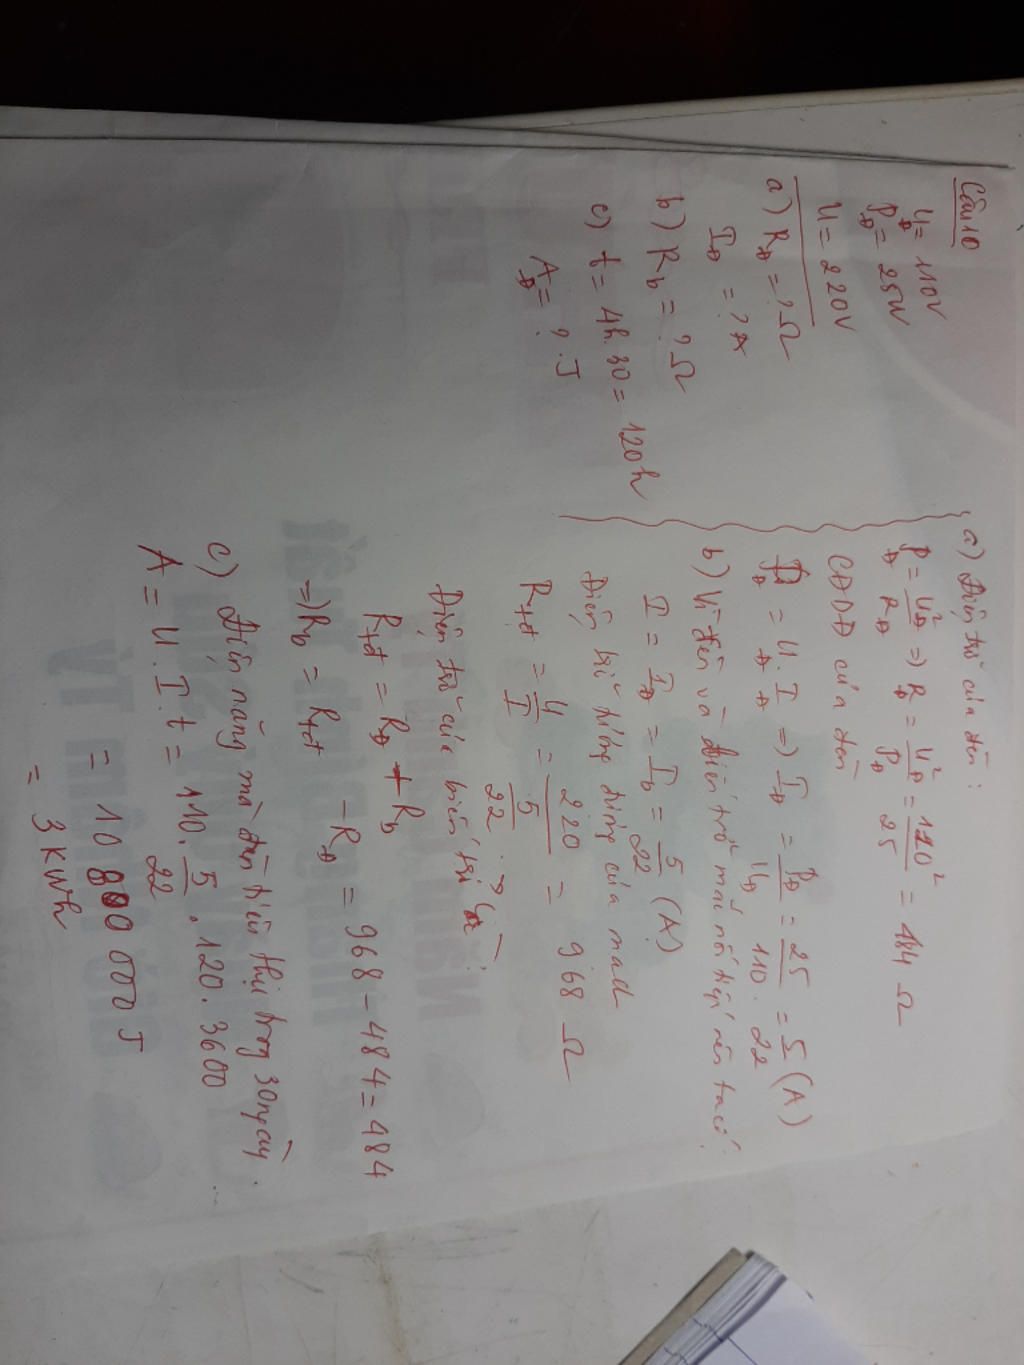 Câu 10
U_Đ = 110V
P_Đ = 25W
U = 220V
a) R_Đ = ? Ω
I_Đ = ? A
b) R_b = ? Ω
c) t = 4h.30 = 120h
A_Đ = ? J
a) Điện trở của đèn:
P_Đ = U²_Đ / R_Đ => R_Đ = U²_Đ / P_Đ = 110² / 25 = 484 Ω
CĐDĐ của đèn
P_Đ = U_Đ . I_Đ => I_Đ = P_Đ / U_Đ = 25 / 110 = 5 / 22 (A)
b) Vì đèn và điện trở mắc nối tiếp nên ta có:
I = I_Đ = I_b = 5 / 22 (A)
Điện trở tương đương của mạch
R_tđ = U / I = 220 / (5 / 22) = 968 Ω
Điện trở của biến trở là:
R_tđ = R_Đ + R_b
=> R_b = R_tđ - R_Đ = 968 - 484 = 484
c) Điện năng mà đèn tiêu thụ trong 30 ngày.
A = U . I . t = 110 . 5 / 22 . 120 . 3600
= 10 800 000 J
= 3 kWh